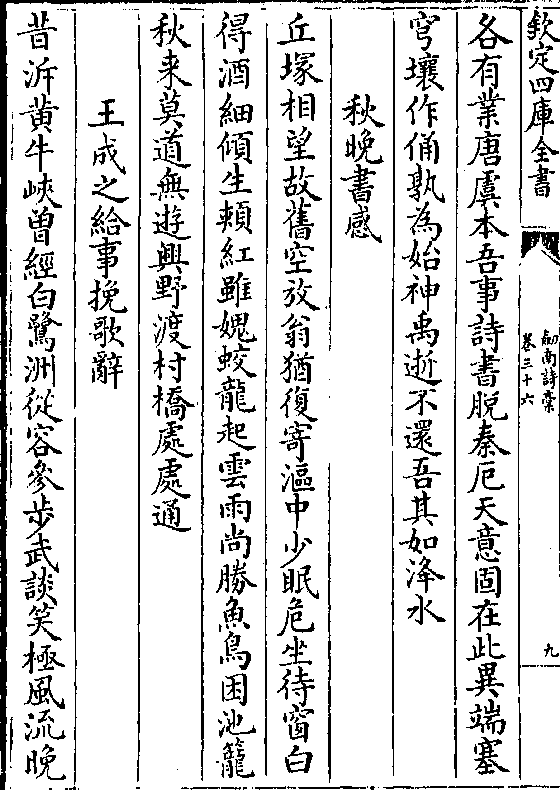 欽定四庫全書
劍南詩稾
卷三十六
九
各有業唐虞本吾事詩書脱秦厄天意固在此異端塞
穹壤作俑孰為始神禹逝不還吾其如洚水
秋晩書感
丘塚相望故舊空放翁猶復寄漚中少眠危坐待窗白
得酒細傾生頰紅雖媿蛟龍起雲雨尚勝魚鳥困池籠
秋来莫道無遊興野渡村橋處處通
王成之給事挽歌辭
昔泝黄牛峽曽經白鷺洲從容參步武談笑極風流晩